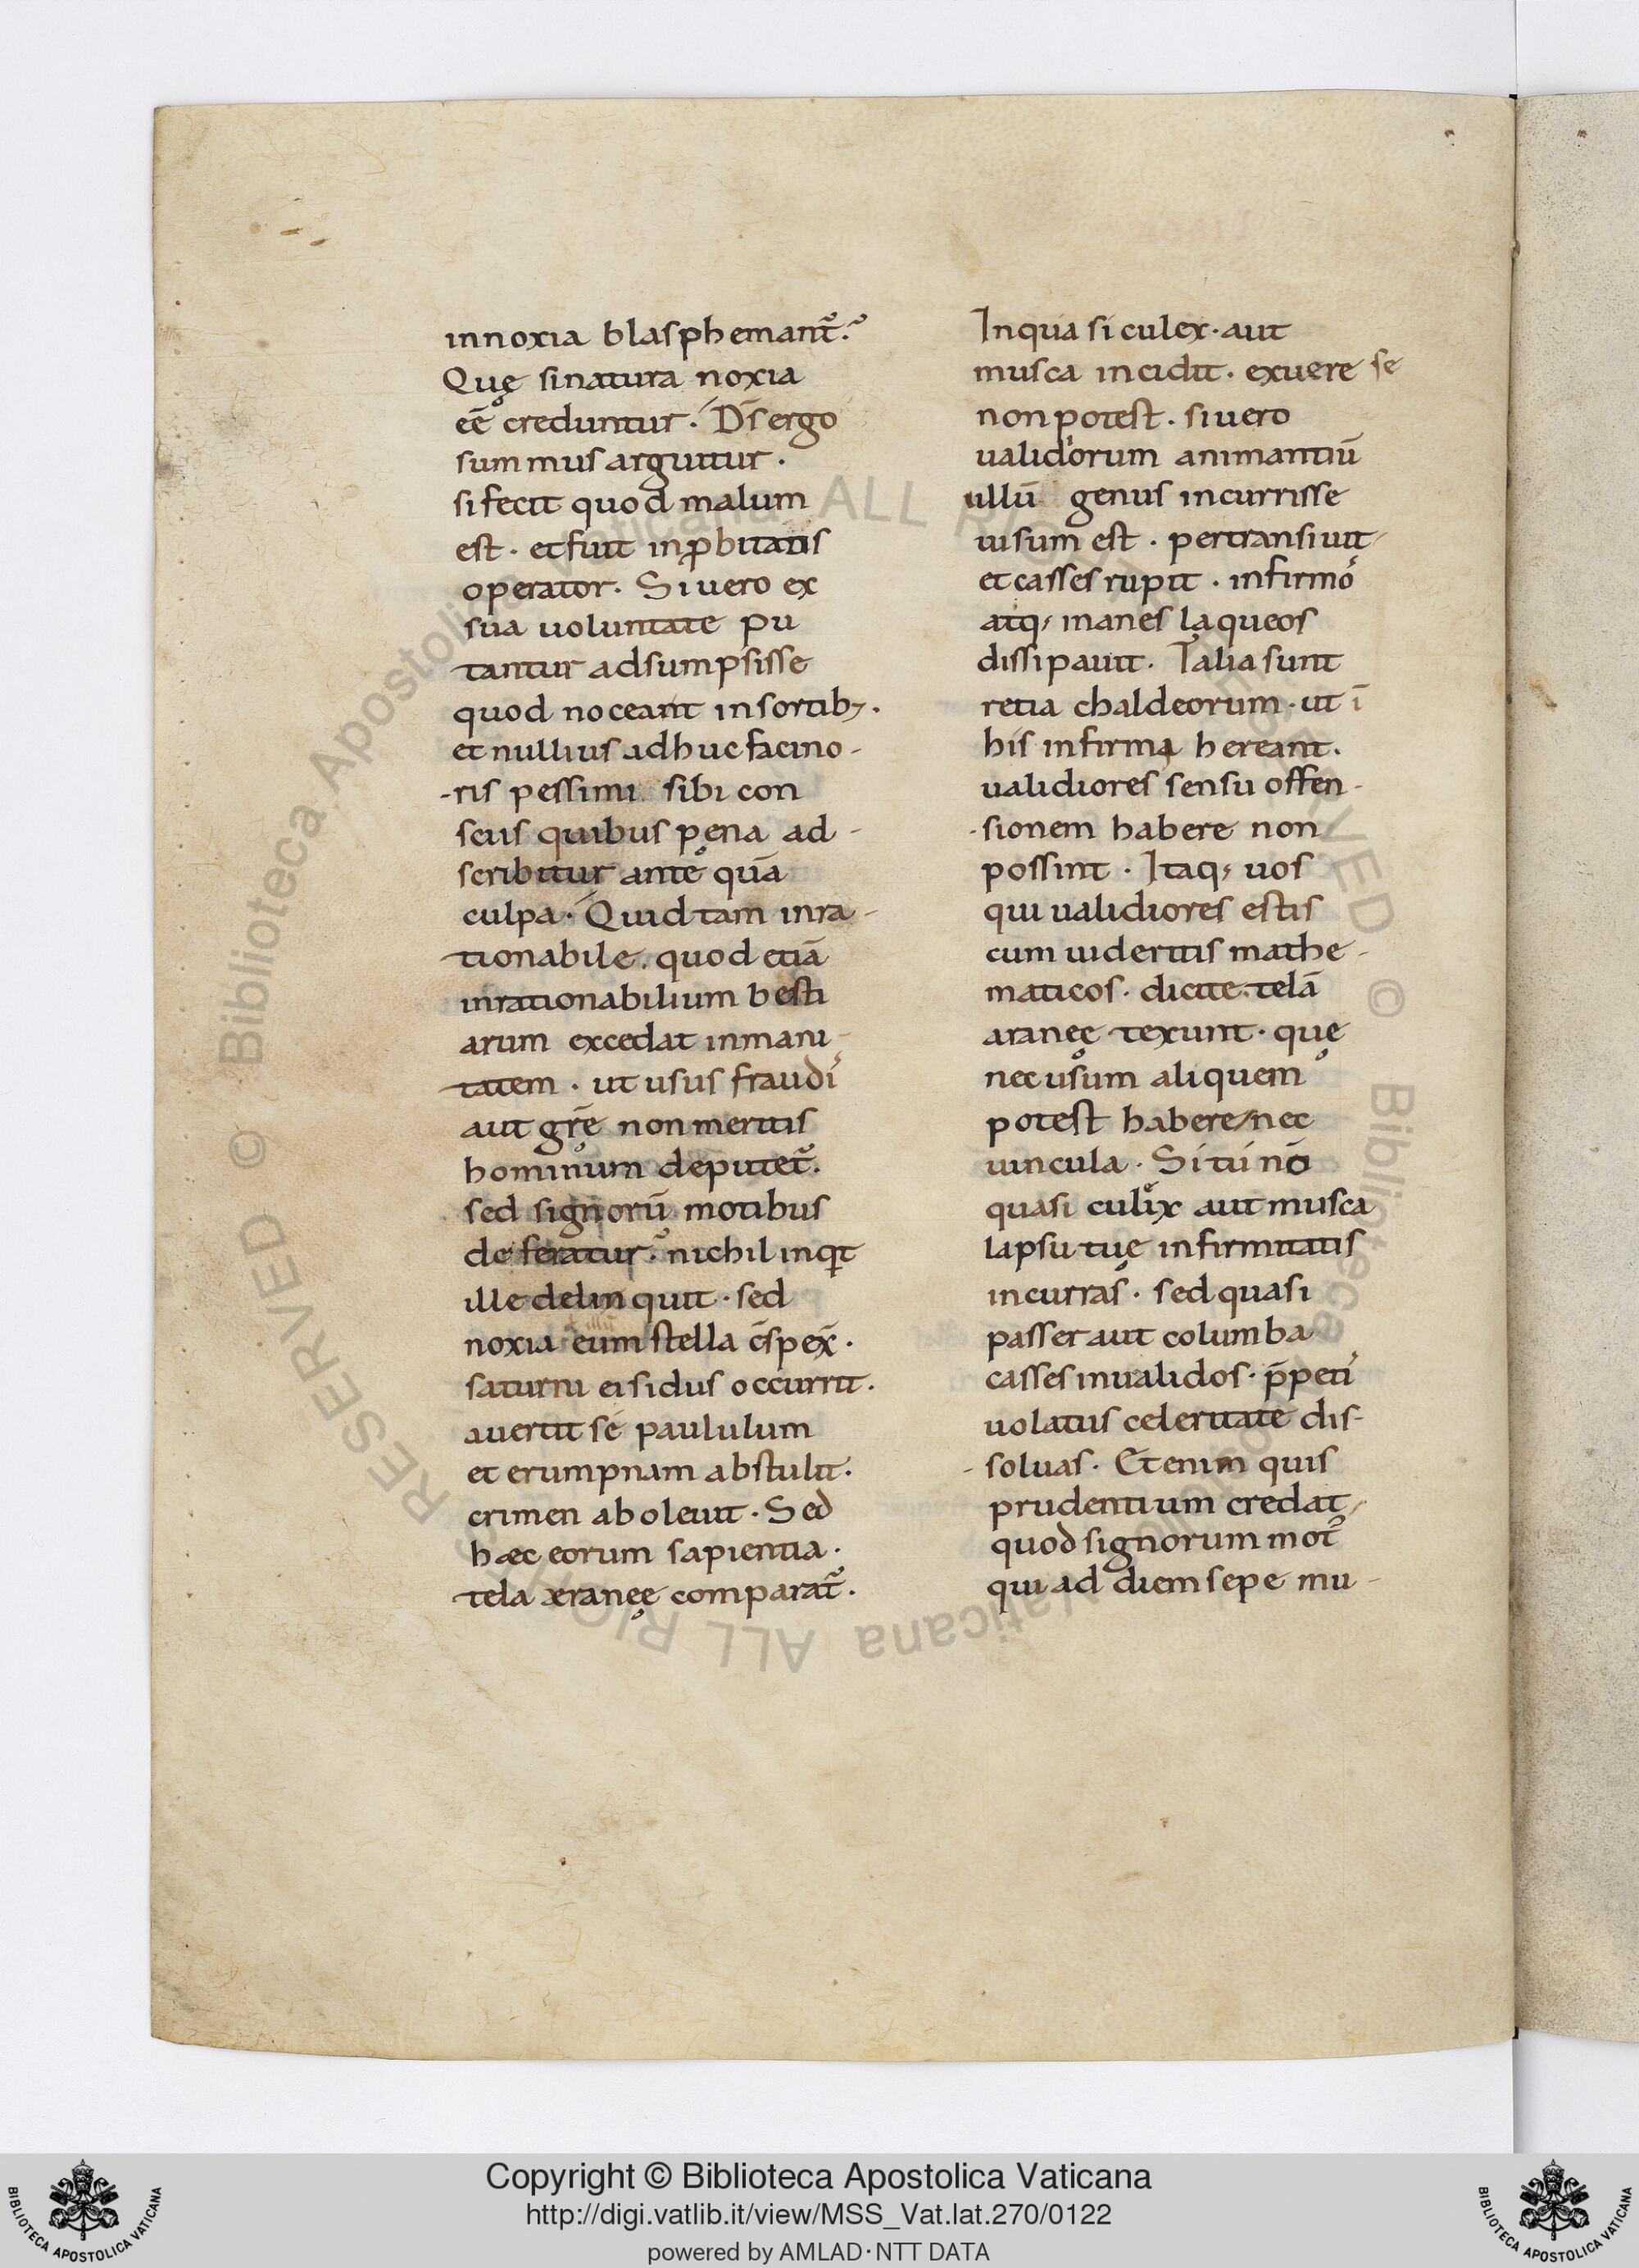 innoxia blasphemant᷑.᷑
Quę si natura noxia
eē creduntur. Ds̄ ergo
summus arguitur.
si fecit quod malum
est. et fuit inp̱bitatis
operator. Si uero ex
sua uoluntate pu
tantur adsumpsisse
quod noceant in sortib;.
et nullius adhuc facino-
-ris pessimi sibi con
sciis quibus pena ad-
scribitur ante quā
culpa. Quid tam inra-
tionabile. quod etiā
inrationabilium besti
arum excedat inmani-
tatem. ut usus fraudi
aut gr̄e non meritis
hominum deputet᷑.
sed signorū motibus
deferatur.᷑ nichil inqt
ille delinquit. sed
noxia eum stella c̄spex̄.
saturni ei sidus occurrit.
auertit se paululum
et erumpnam abstulit.
crimen aboleuit. Sed
hæc eorum sapientia.
tela æraneę comparat᷑.
In qua si culex. aut
musca incidit. exuere se
non potest. si uero
ualidorum animantiū
ullū genus incurrisse
uisum est. pertransiuit
et casses rupit. infirmo
atq; manes laqueos
dissipauit. Talia sunt
retia chaldeorum. ut ī
his infirma hereant.
ualidiores sensu offen-
-sionem habere non
possint. Itaq; uos
qui ualidiores estis
cum uideritis mathe-
maticos. dicite. telā
araneę texunt. quę
nec usum aliquem
potest habere nec
uincula. Si tu nō
quasi culix aut musca
lapsu tuę infirmitatis
incurras. sed quasi
passer aut columba
casses inualidos. p̄peti
uolatus celeritate dis-
-soluas. Etenim quis
prudentium credat,
quod signorum mot᷑
qui ad diem sepe mu-
Copyright © Biblioteca Apostolica Vaticana
http://digi.vatlib.it/view/MSS_Vat.lat.270/0122
powered by AMLAD·NTT DATA
BIBLIOTECA APOSTOLICA VATICANA
BIBLIOTECA APOSTOLICA VATICANA
© Biblioteca Apostolica Vaticana ALL RIGHTS RESERVED © Biblioteca Apostolica Vaticana ALL RIGHTS RESERVED